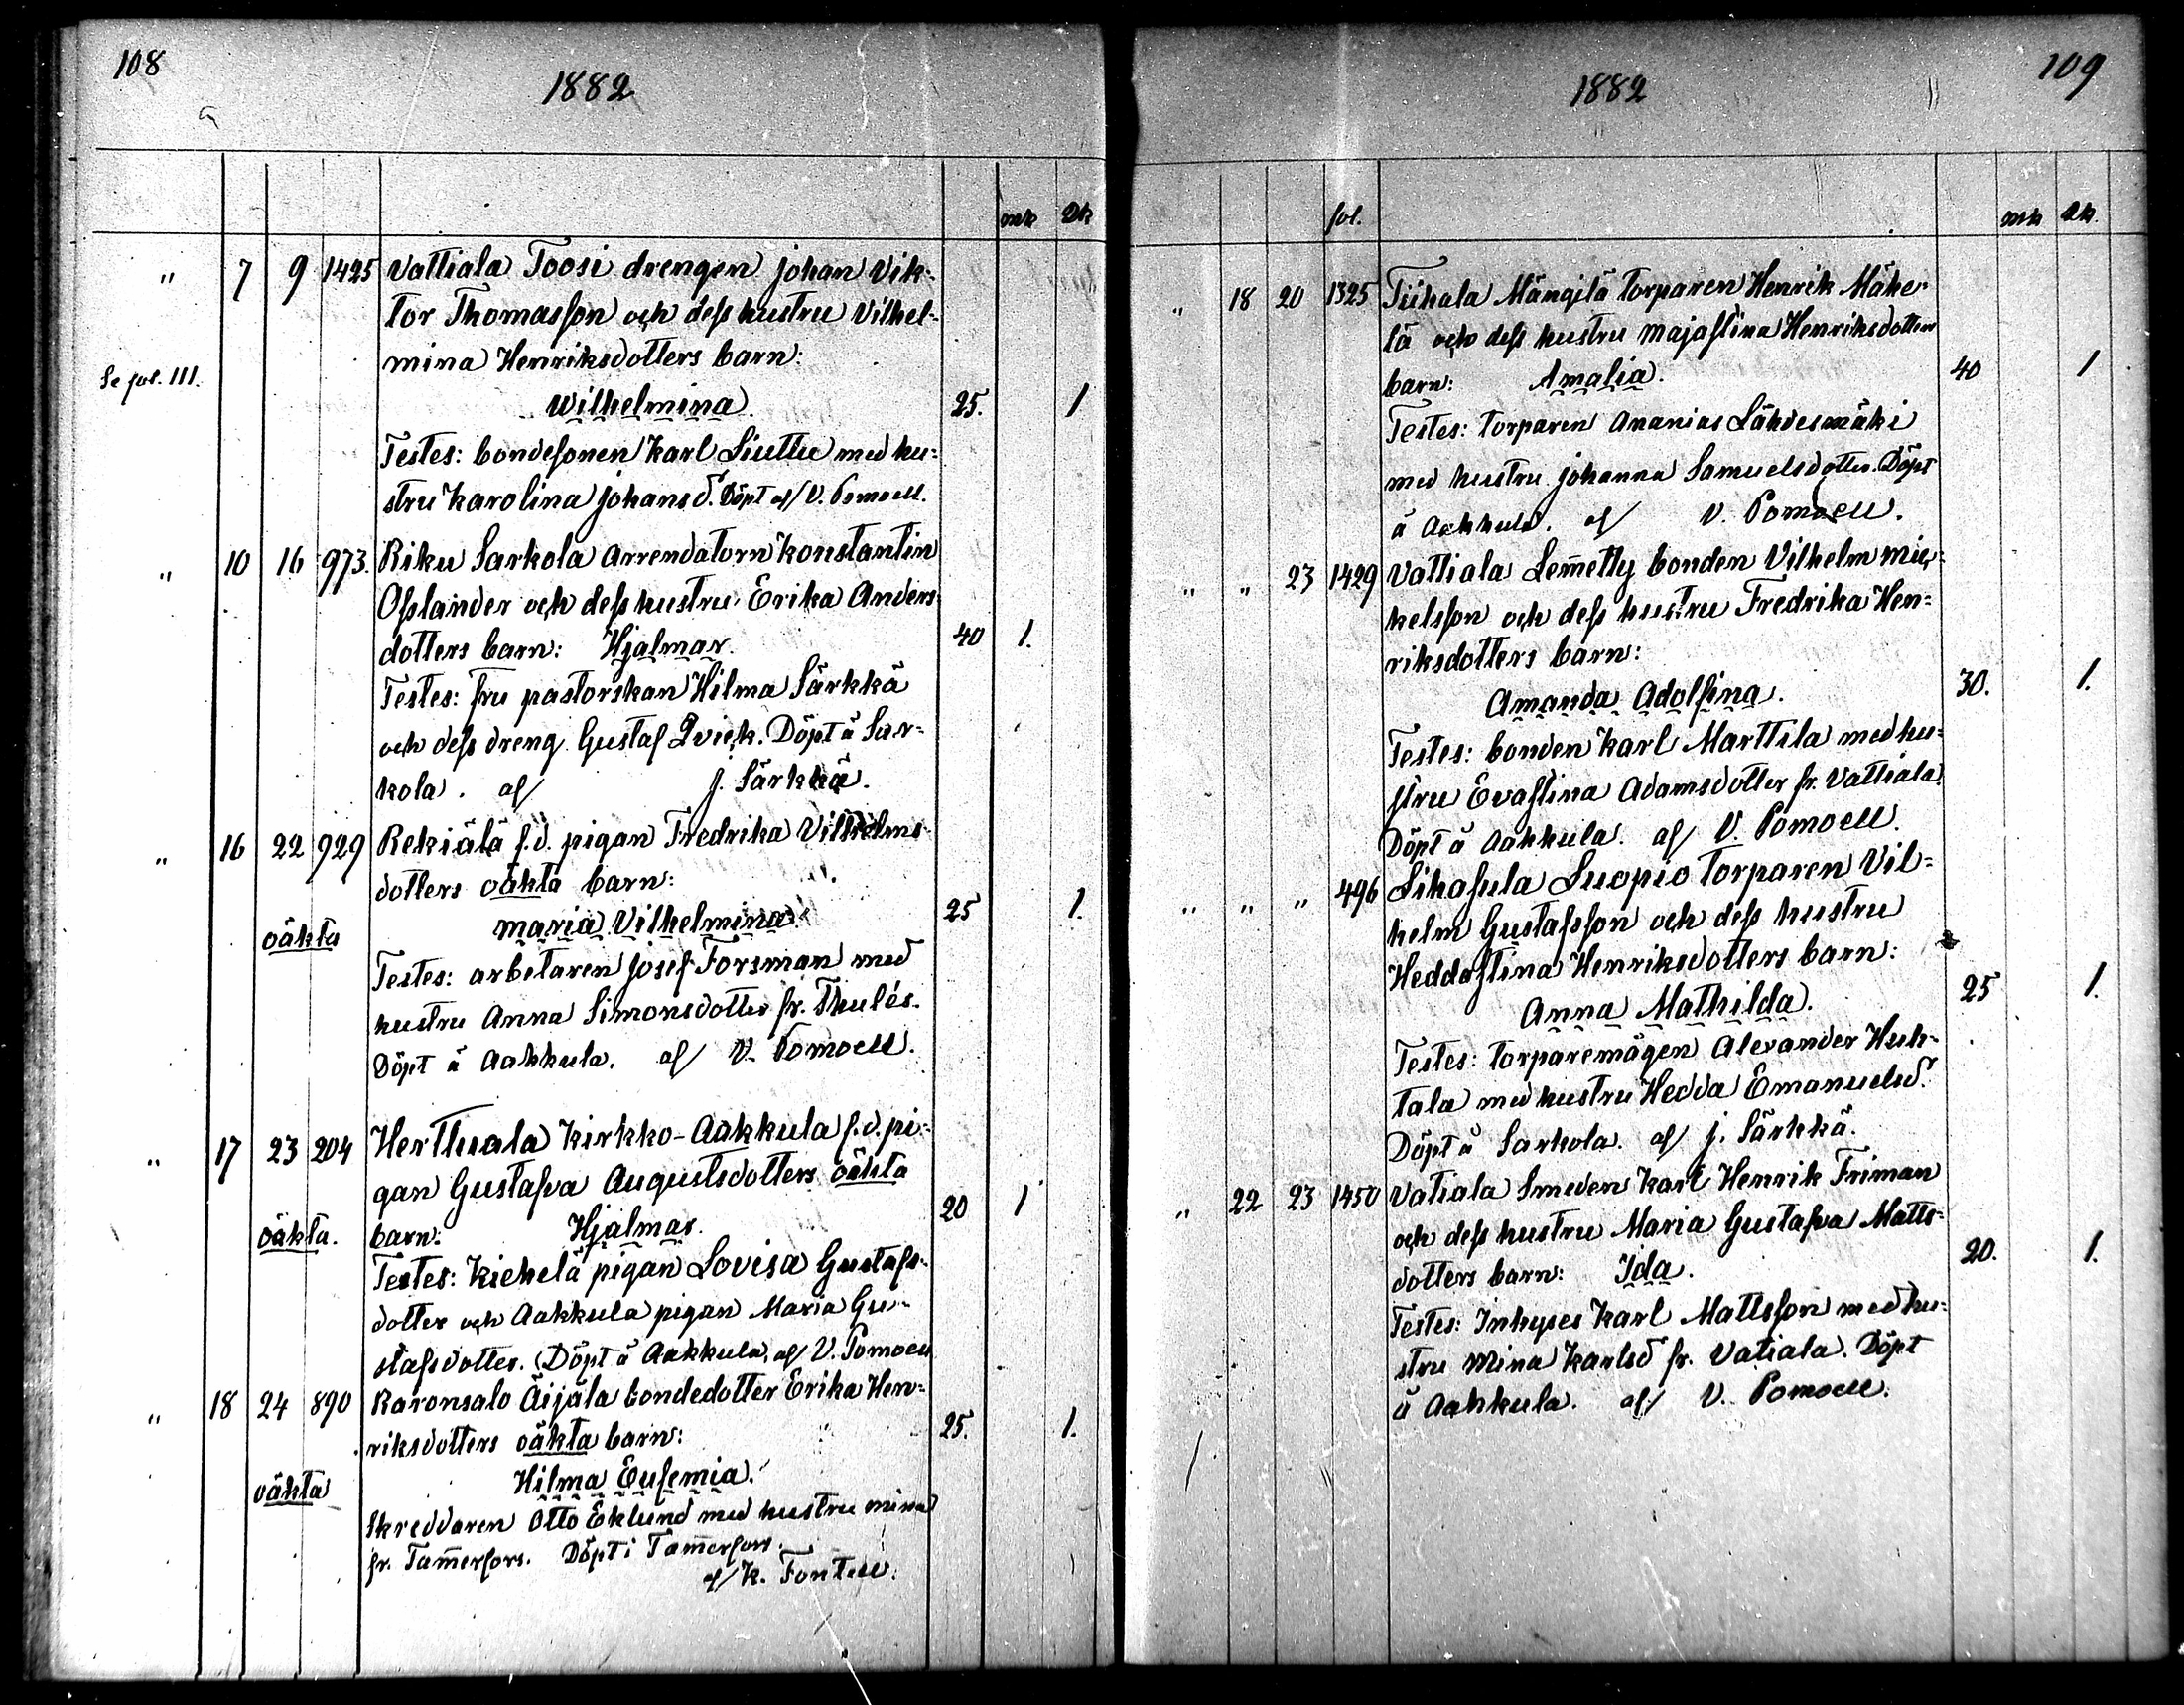 108
1882
mk Qk
" 7 9 1425 Vattiala Toosi drengen Johan Vik-
tor Thomasson och dess hustru Vilhel-
mina Henriksdotters barn:
Se fol. 111.
Wilhelmina. 25. 1
Testes: bondesonen Karl Liuttu med hu-
stru Karolina Johansd. Döpt af V. Pomoell.
" 10 16 973. Riku Sarkola arrendatorn Konstantin
Osslander och dess hustru Erika Anders
dotters barn: Hjalmar. 40 1.
Testes: fru pastorskan Hilma Särkkä
och dess dreng Gustaf Qvick. Döpt å Sar-
kola. af J. Särkkä.
" 16 22 929 Rekiälä f.d. pigan Fredrika Vilhelms-
dotters oäkta barn:
oäkta Maria Vilhelmina. 25 1.
Testes: arbetaren Josef Forsman med
hustru Anna Simonsdotter fr. Thulés.
Döpt å Aakkula. af V. Pomoell.
" 17 23 204 Herttuala Kirkko-Aakkula f.d. pi-
gan Gustafva Augustsdotters oäkta
oäkta. barn: Hjalmar. 20 1
Testes: Kiehelä pigan Lovisa Gustafs-
dotter och Aakkula pigan Maria Gu-
stafsdotter. Döpt å Aakkula, af V. Pomoell
" 18 24 890 Raronsalo Äijälä bondedotter Erika Hen-
riksdotters oäkta barn: 25. 1.
oäkta Hilma Eufemia.
Skreddaren Otto Eklund med hustru Mina
fr. Tammerfors. Döpt i Tammerfors.
af K. Fontell.
109
1882
fol. mk Qk.
" 18 20 1325 Tiihala Mängilä torparen Henrik Mähe-
lä och dess hustru Majastina Henriksdotters
barn: Amalia. 40 1
Testes: torparen Ananias Lähdesmäki
med hustru Johanna Samuelsdotter. Döpt
å Aakkula. af V. Pomoell.
" " 23 1429 Vattiala Lem̅etty bonden Vilhelm Mic-
kelsson och dess hustru Fredrika Hen-
riksdotters barn:
Amanda Adolfina. 30. 1.
Testes: bonden Karl Marttila med hu-
stru Evastina Adamsdotter fr. Vattiala.
Döpt å Aakkula. af V. Pomoell.
" " " 496 Sihasula Suopio torparen Vil-
helm Gustafsson och dess hustru
Heddastina Henriksdotters barn:
Anna Mathilda. 25 1.
Testes: torparemågen Alexander Huh-
tala med hustru Hedda Emanuelsd.
Döpt å Sarkola. af J. Särkkä.
" 22 23 1450 Vatiala Smeden Karl Henrik Friman
och dess hustru Maria Gustafva Matts-
dotters barn: Ida. 20. 1.
Testes: Inhyses Karl Mattsson med hu-
stru Mina Karlsd fr. Vatiala. Döpt
å Aakkula. af V. Pomoell.